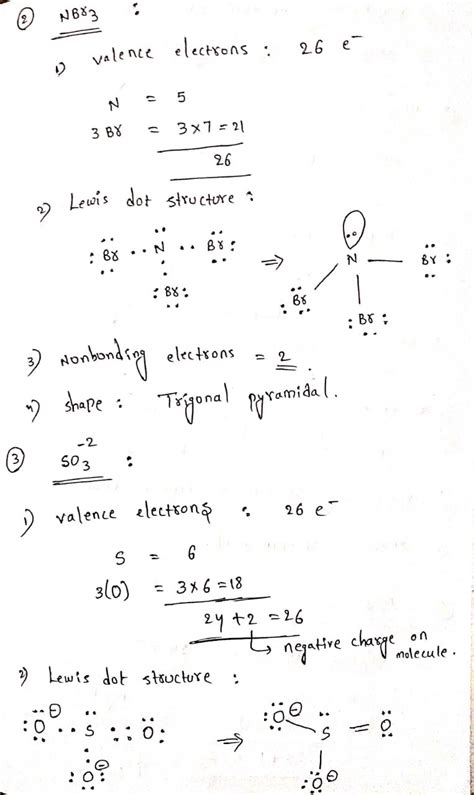 ② NBr3 :
1) valence electrons : 26 e-
N = 5
3 Br = 3×7=21
26
2) Lewis dot structure :
:Br .. N .. Br: ⇒ N — Br:
:Br: Br :Br:
3) Nonbonding electrons = 2.
4) shape : Trigonal pyramidal.
③ SO3 -2 :
1) valence electrons : 26 e-
S = 6
3(O) = 3×6=18
24 +2 =26
↳ negative charge on
molecule.
2) Lewis dot structure :
:O⊖ .. S .. :: O: ⇒ :O⊖ S = O
:O⊖ :O⊖